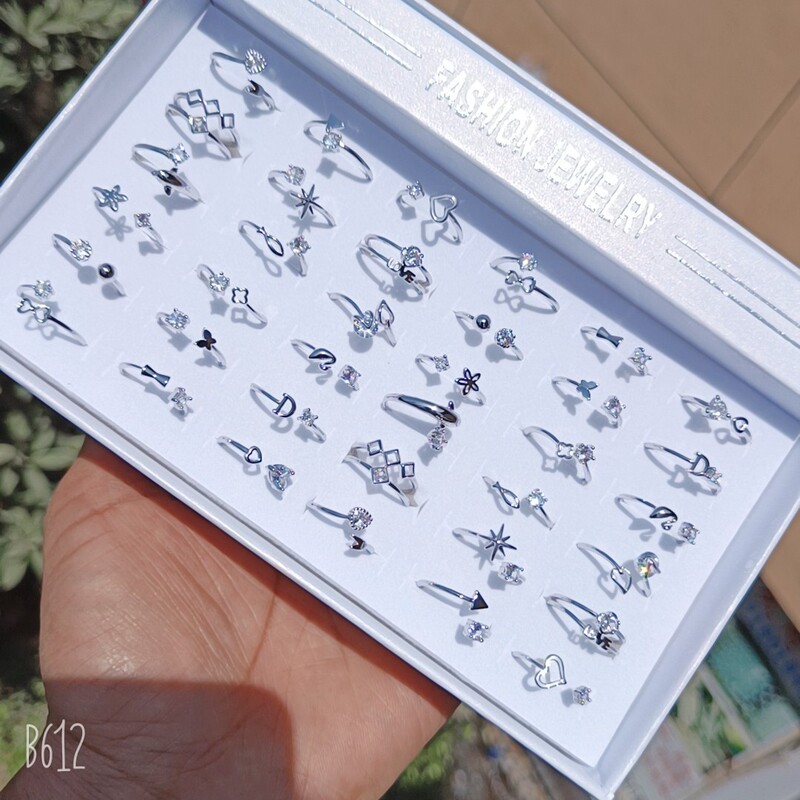 FASHION JEWELRY
B612